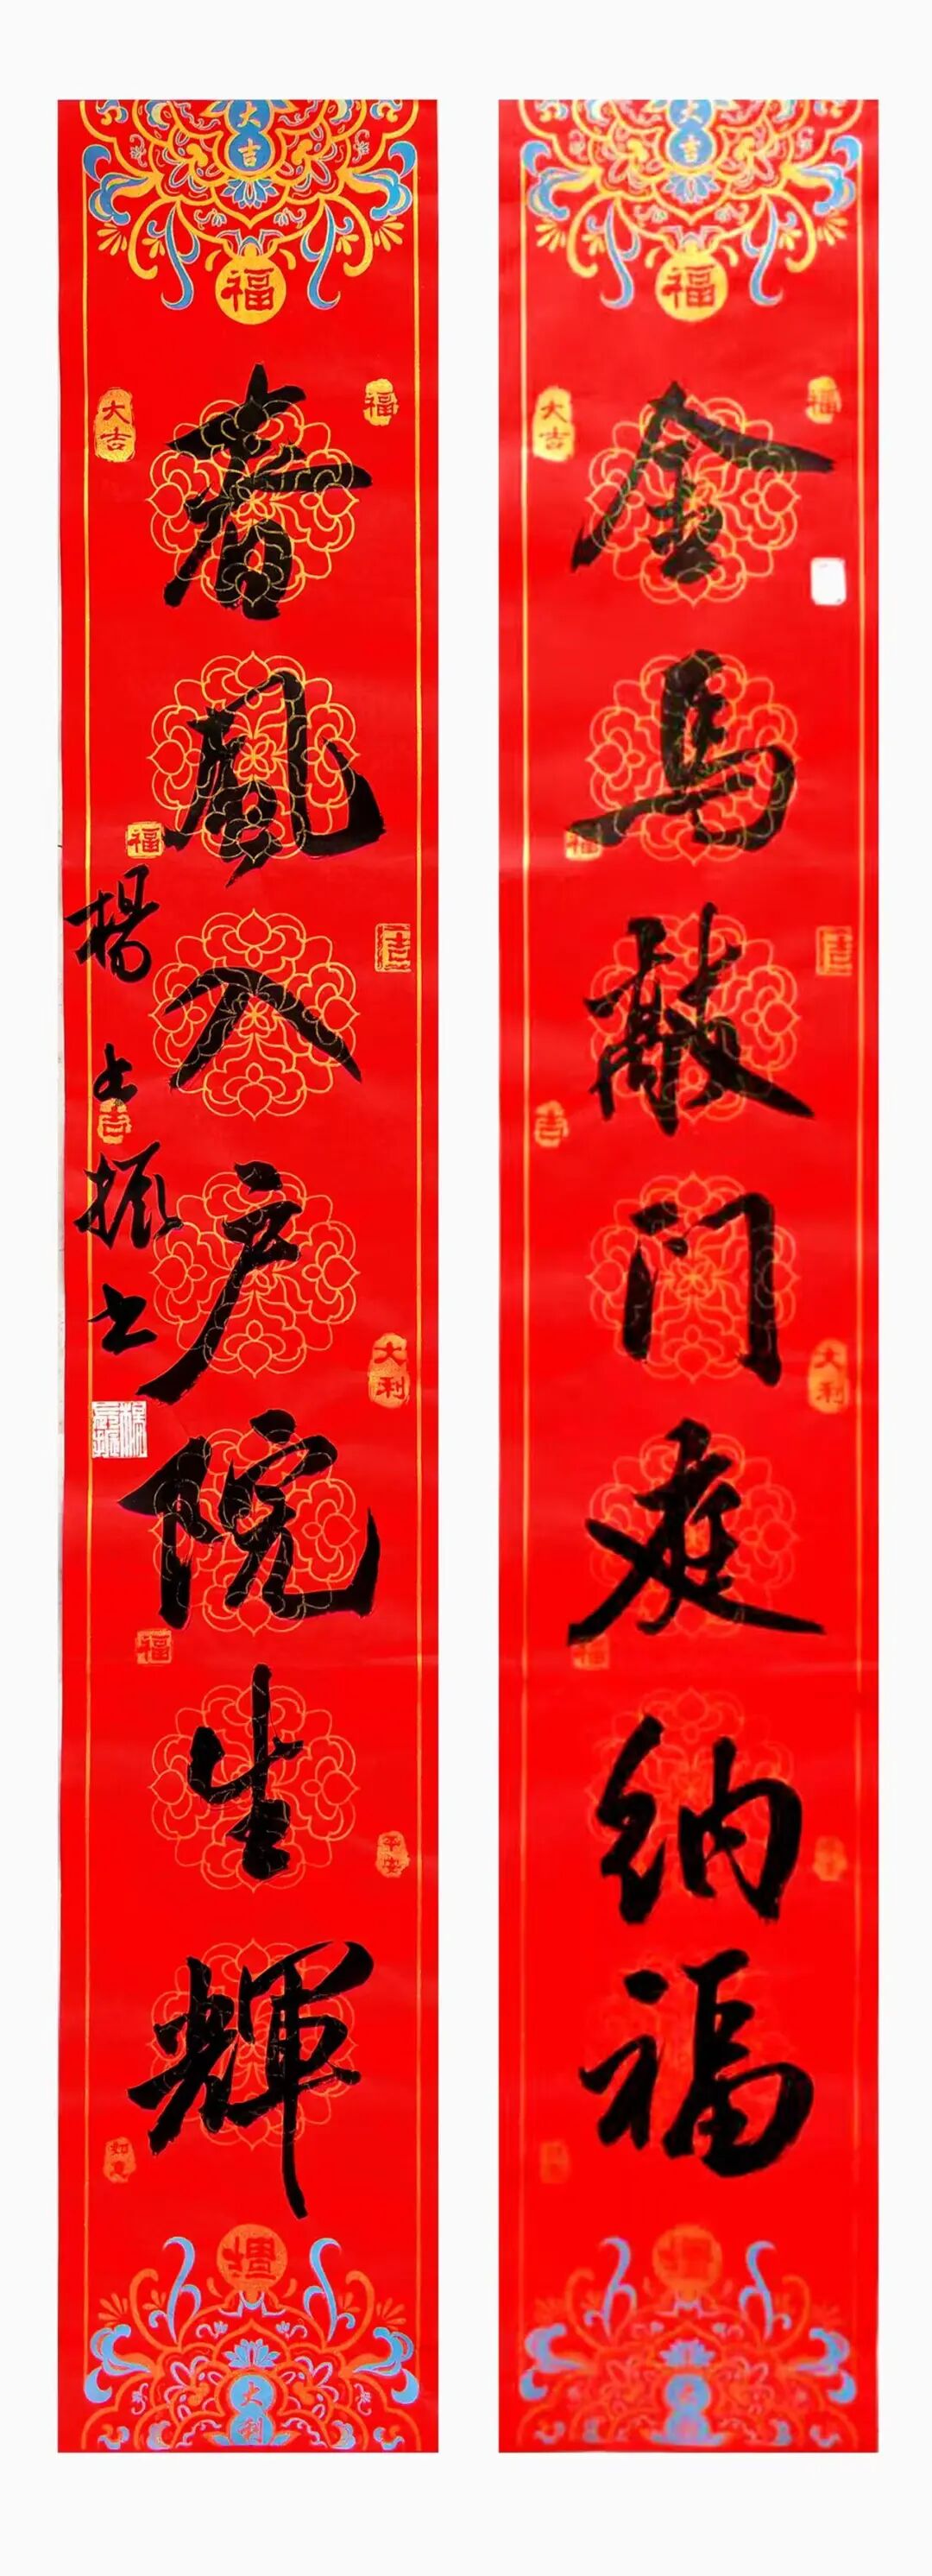 大吉
福
大吉
福
金馬敲门庭纳福
福
吉
吉
大利
福
大吉
福
大吉
福
春風入户院生輝
福
吉
吉
大利
福
平安
如意
福
大利
楊
振